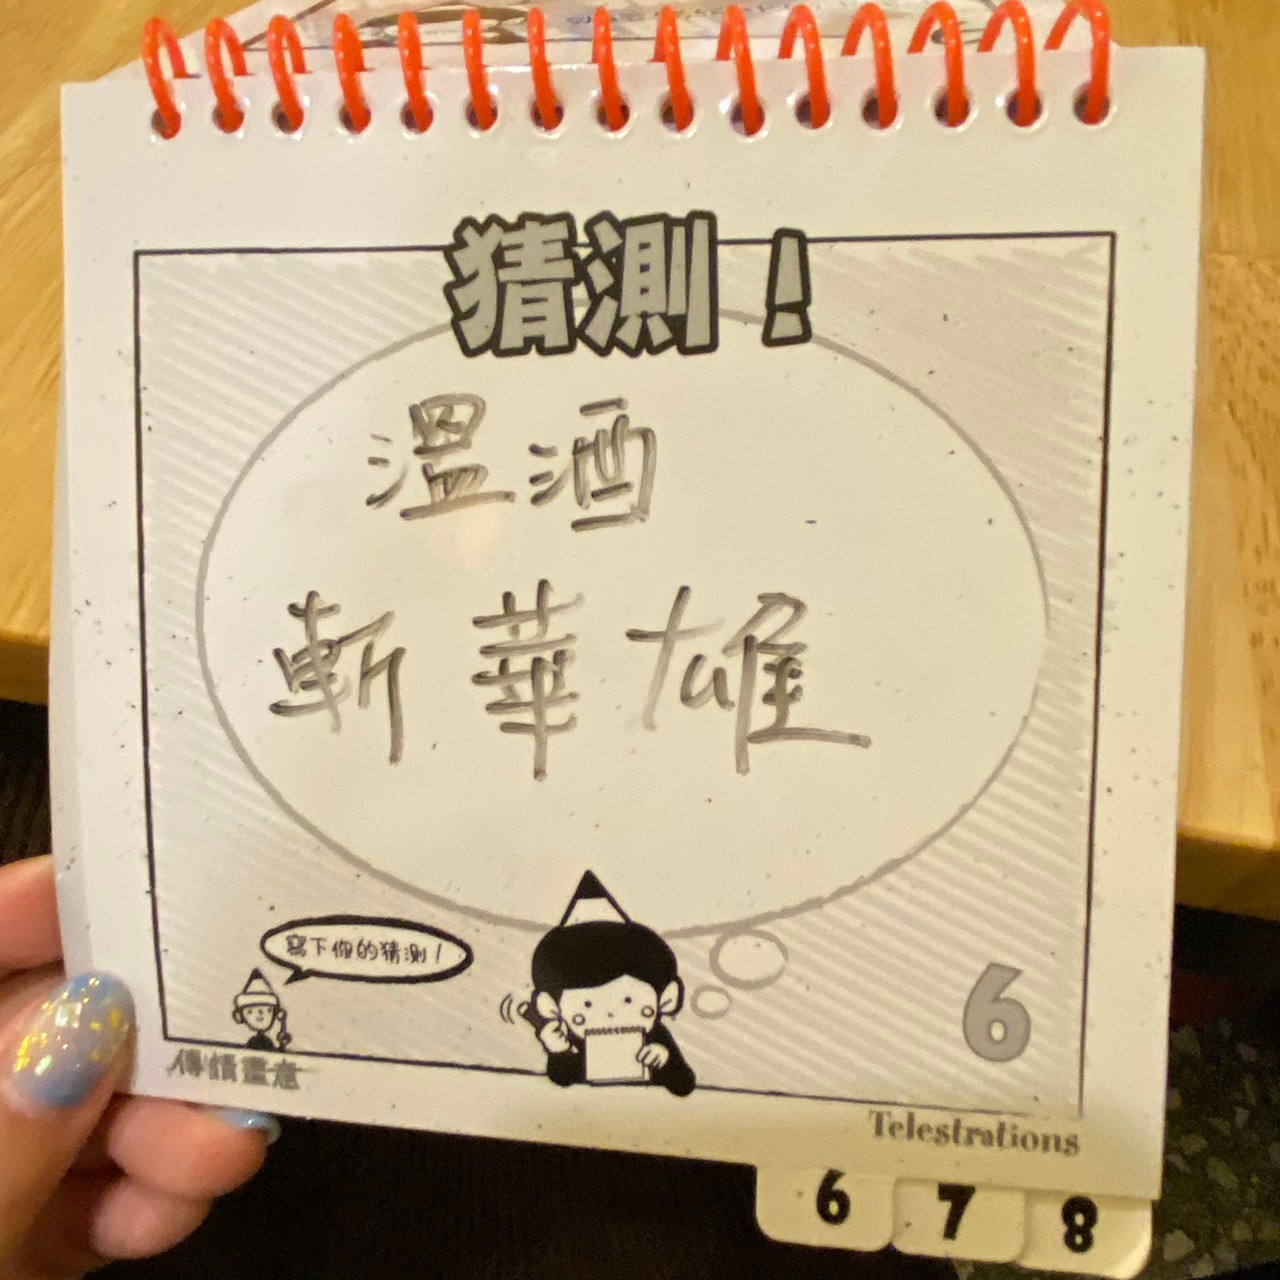 猜測！
溫酒
斬華雄
寫下你的猜測！
6
傳情畫意
Telestrations
6 7 8